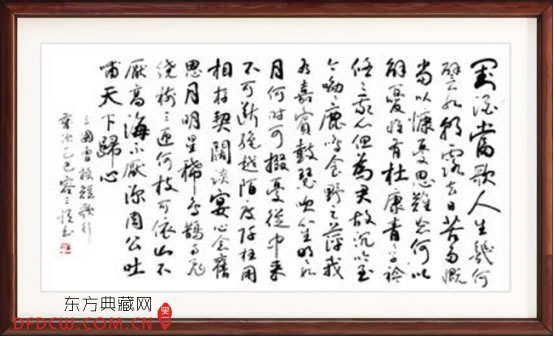 對酒當歌人生幾何
譬如朝露去日苦多慨
當以慷憂思難忘何以
解憂唯有杜康青青子衿
悠悠我心但为君故沉吟至
今呦呦鹿鸣食野之苹我
有嘉賓鼓瑟吹笙明明如
月何时可掇憂從中来
不可断绝越陌度阡枉用
相存契闊谈宴心念舊
恩月明星稀烏鵲南飛
绕樹三匝何枝可依山不
厭高海不厭深周公吐
哺天下歸心
三國曹操短歌行
乙巳
东方典藏网
DFDCW.COM.CN